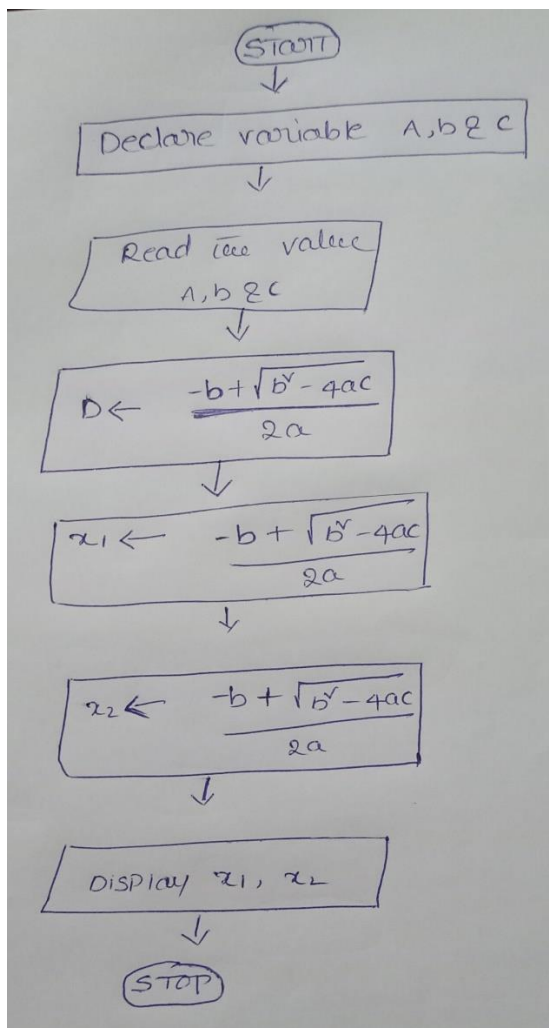 START
Declare variable A, b & C
Read the value
A, b & C
D ← -b + √b² - 4ac
2a
x₁ ← -b + √b² - 4ac
2a
x₂ ← -b + √b² - 4ac
2a
Display x₁, x₂
STOP